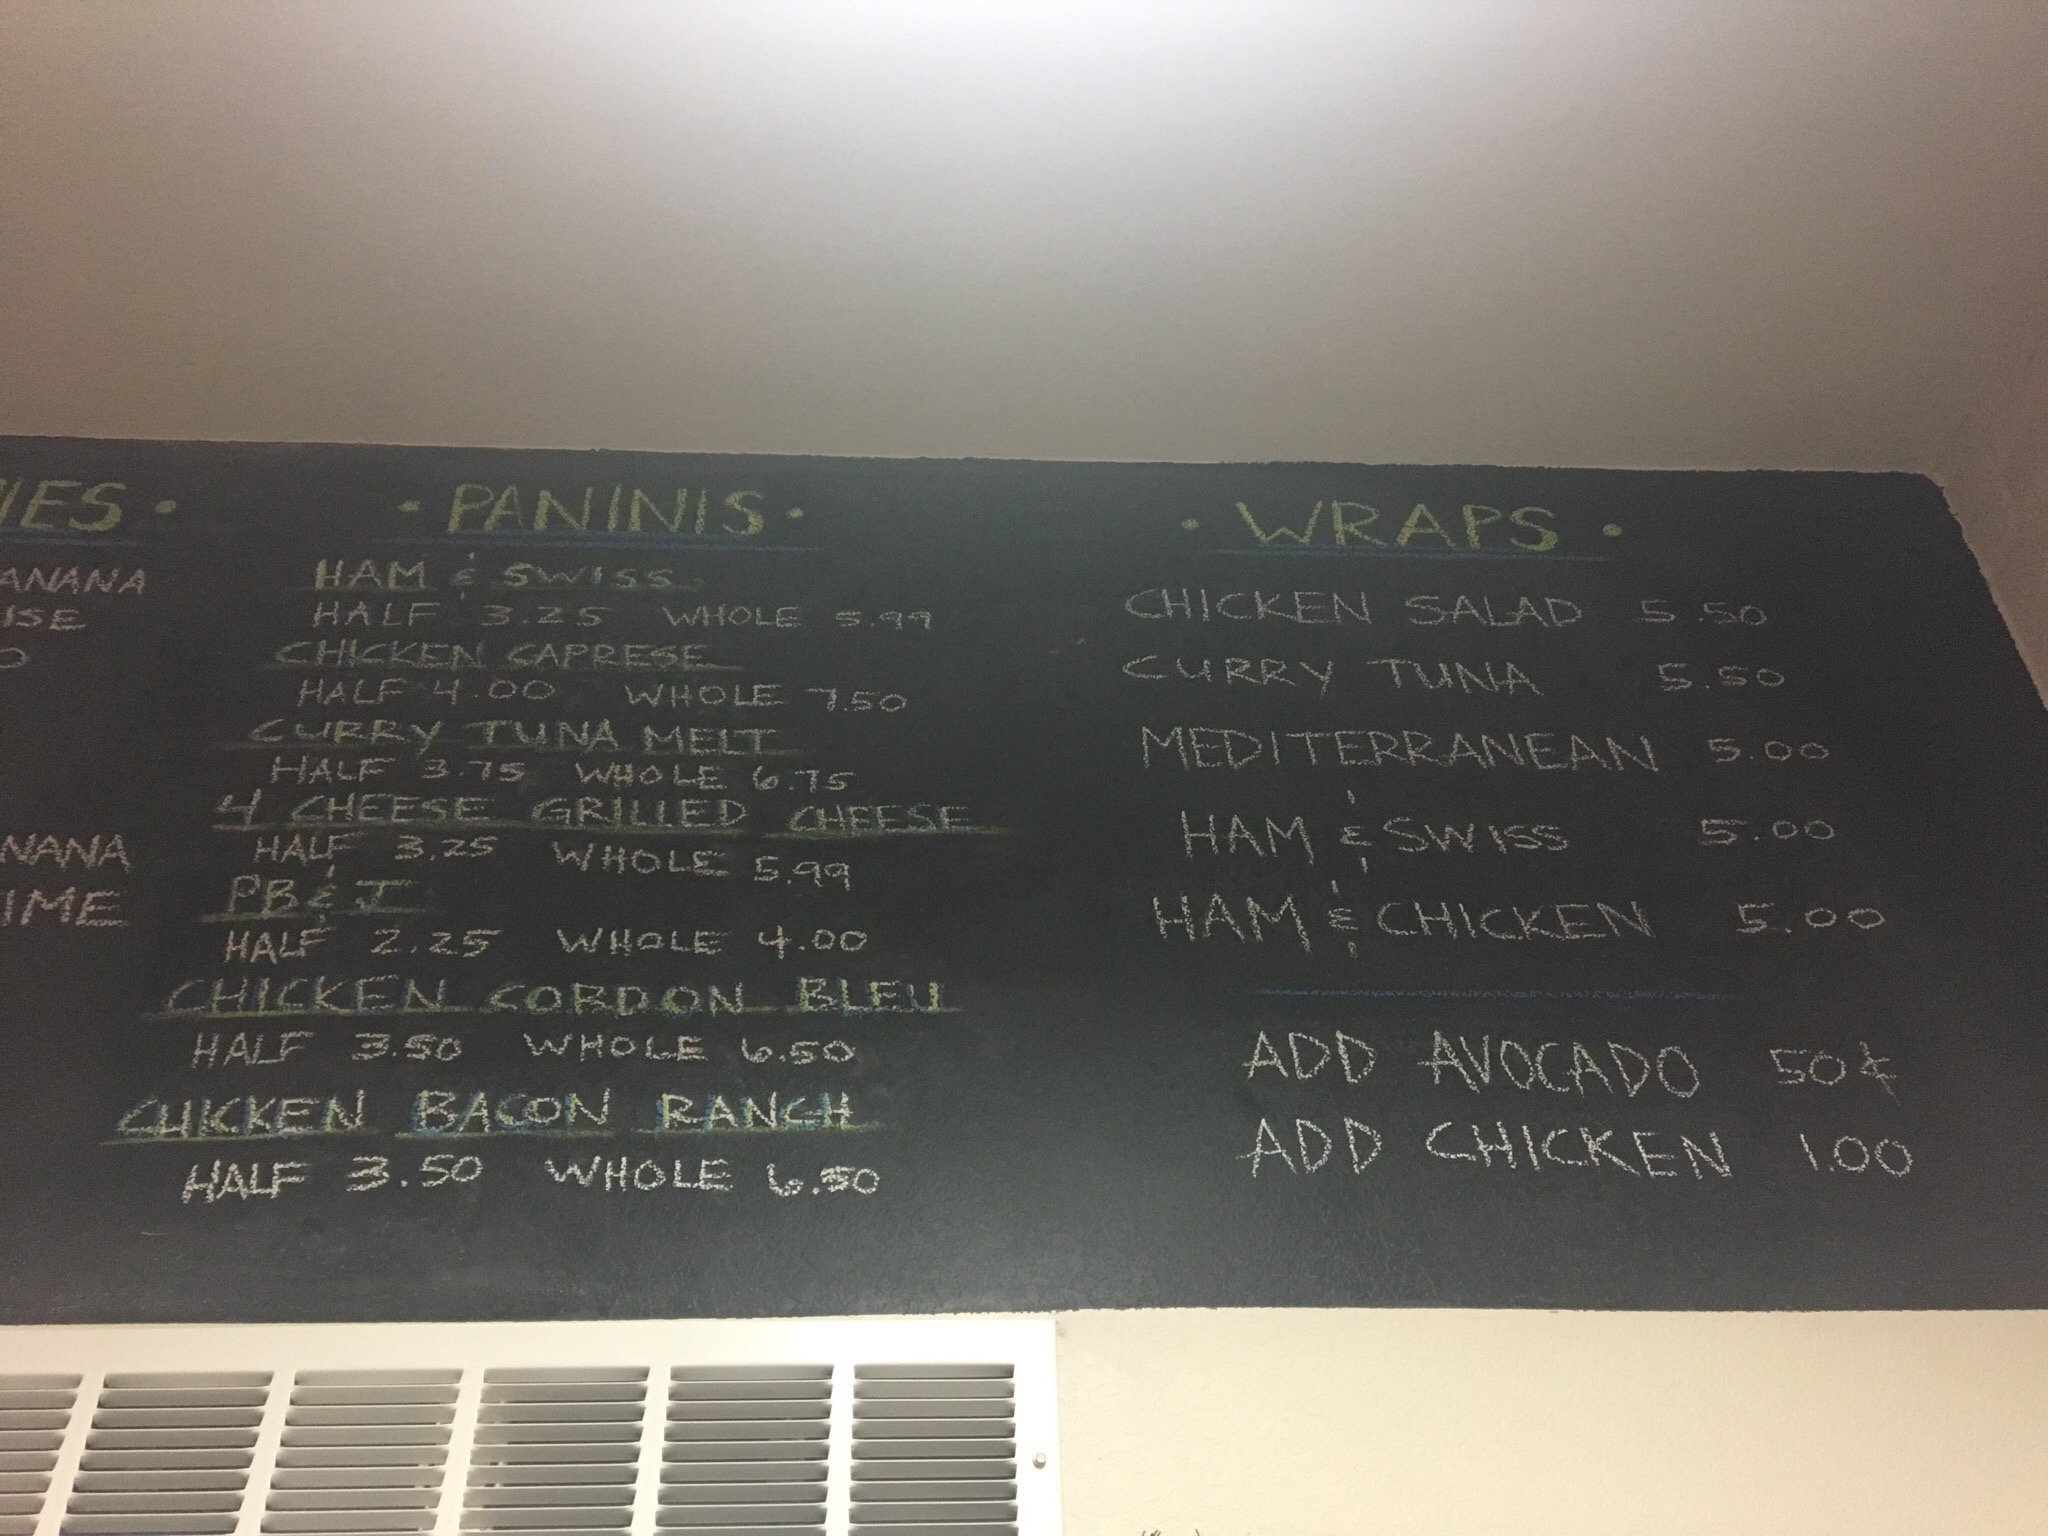 IES •
ANANA
ISE
O
NANA
IME
• PANINIS •
HAM & SWISS
HALF 3.25 WHOLE 5.99
CHICKEN CAPRESE
HALF 4.00 WHOLE 7.50
CURRY TUNA MELT
HALF 3.75 WHOLE 6.75
4 CHEESE GRILLED CHEESE
HALF 3.25 WHOLE 5.99
PB & J
HALF 2.25 WHOLE 4.00
CHICKEN CORDON BLEU
HALF 3.50 WHOLE 6.50
CHICKEN BACON RANCH
HALF 3.50 WHOLE 6.50
• WRAPS •
CHICKEN SALAD 5.50
CURRY TUNA 5.50
MEDITERRANEAN 5.00
HAM & SWISS 5.00
HAM & CHICKEN 5.00
ADD AVOCADO 50¢
ADD CHICKEN 1.00